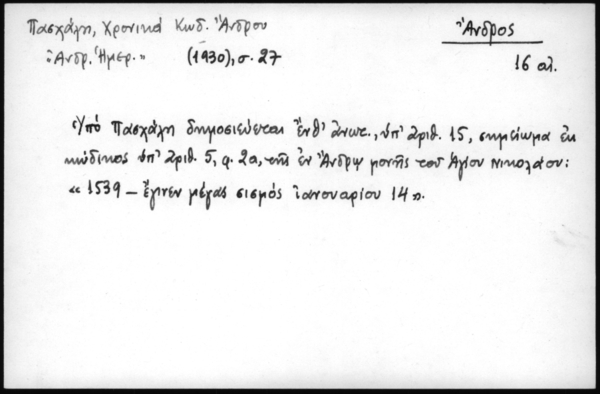 Πασχάλη, Χρονικά Κωδ. Ἄνδρου
"Ἀνδρ. Ἡμερ." (1930), σ. 27
Ἄνδρος
16 αι.
Ὑπό Πασχάλη δημοσιεύεται ἔνθ' ἀνωτ., ὑπ' ἀριθ. 15, σημείωμα ἐκ
κώδικος ὑπ' ἀριθ. 5, φ. 2α, τῆς ἐν Ἄνδρῳ μονῆς τοῦ Ἁγίου Νικολάου:
« 1539 – ἔγινεν μέγας σισμός ἰανουαρίου 14 ».